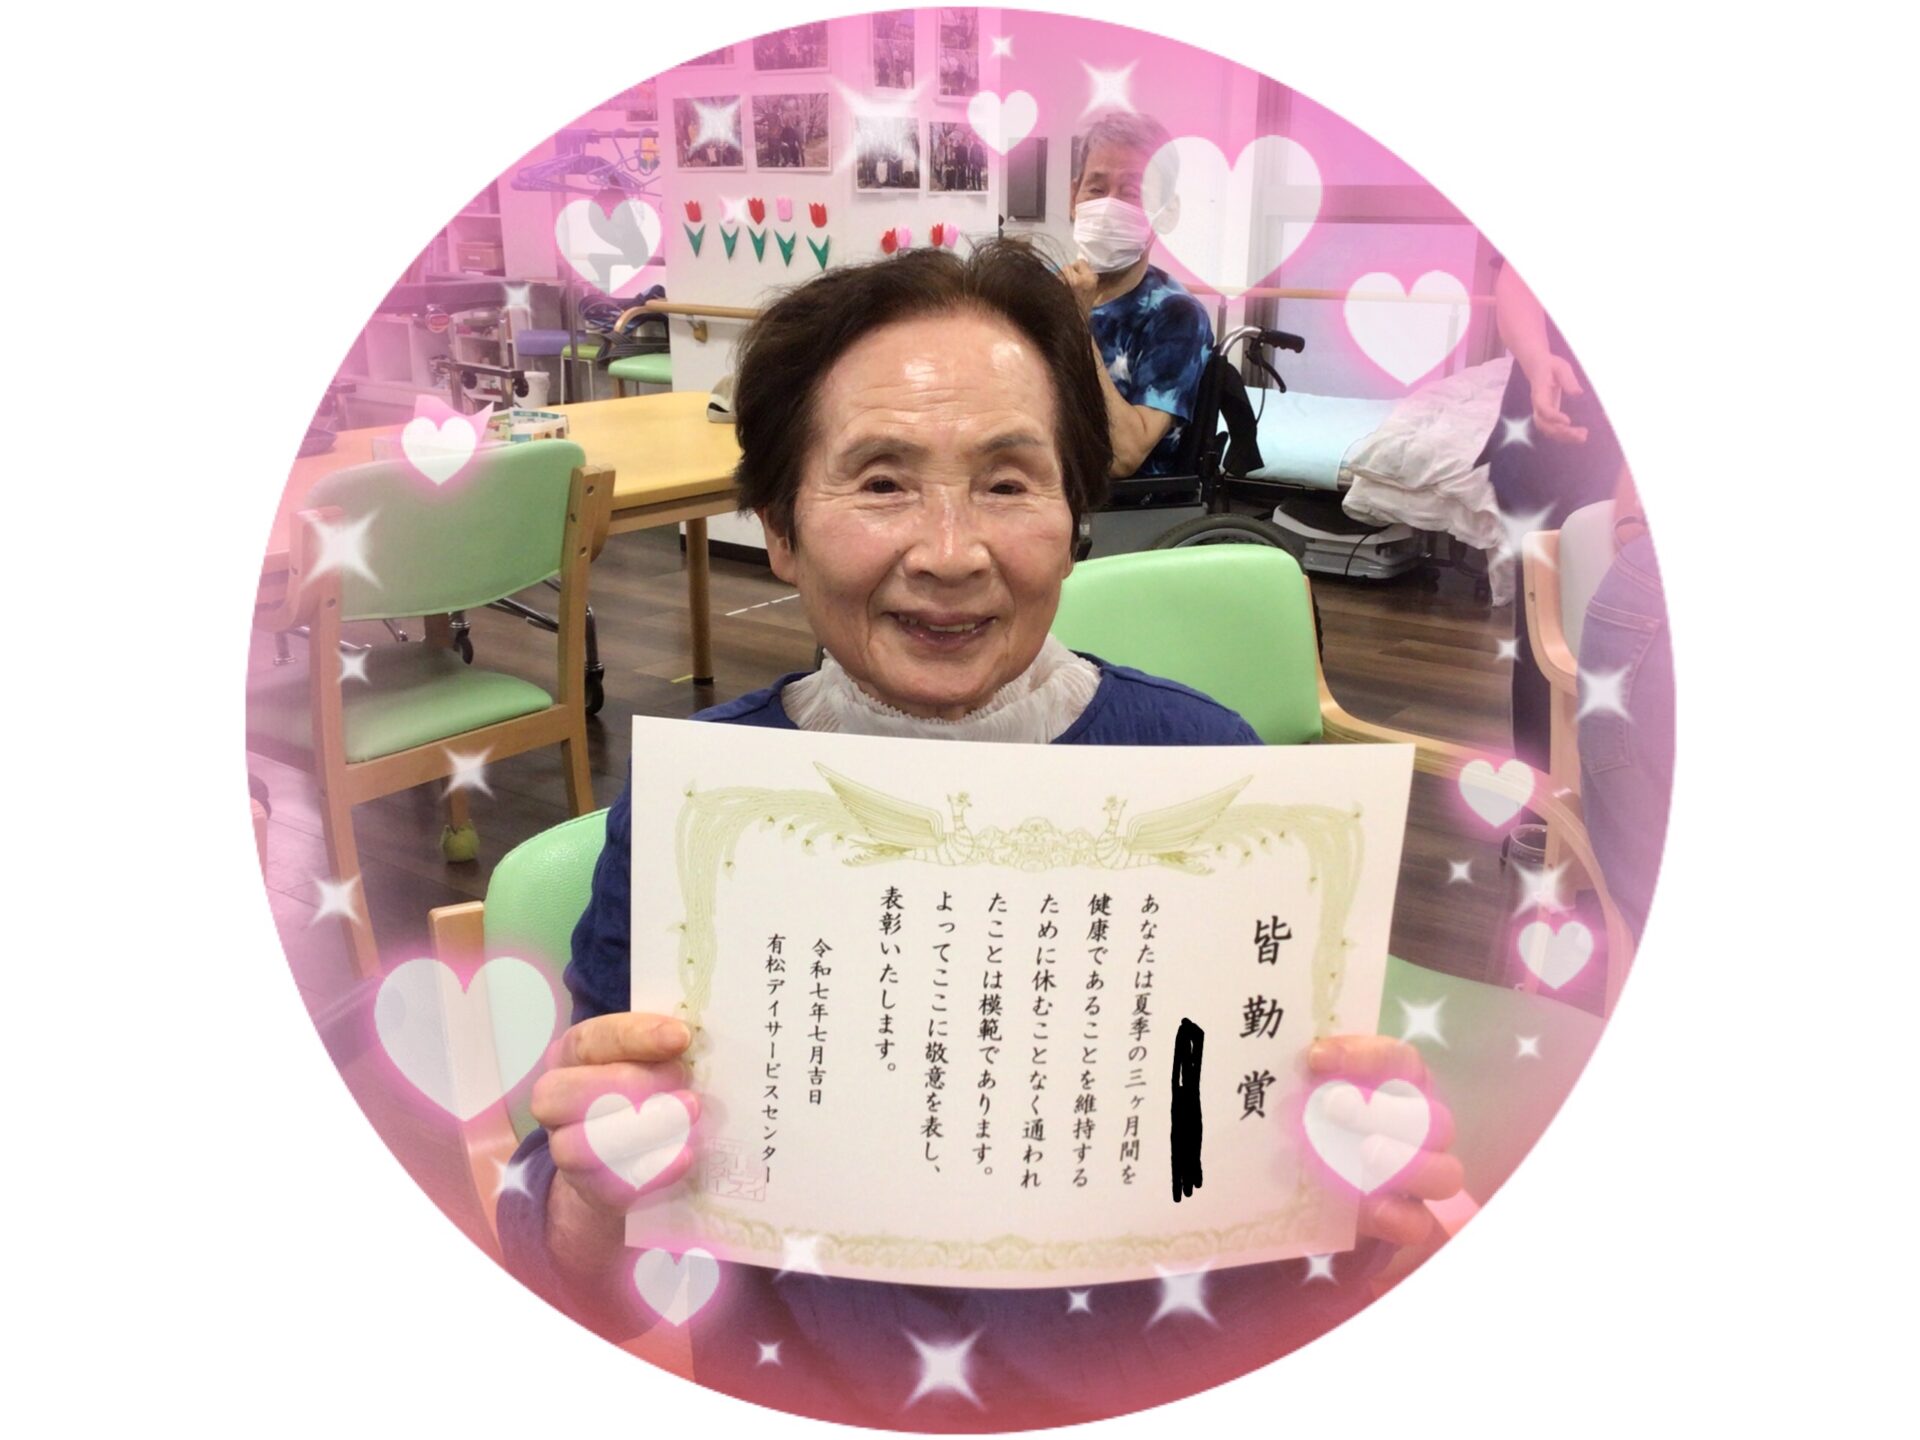 皆勤賞
あなたは夏季の三ヶ月間を
健康であることを維持する
ために休むことなく通われ
たことは模範であります。
よってここに敬意を表し、
表彰いたします。
令和七年七月吉日
有松デイサービスセンター